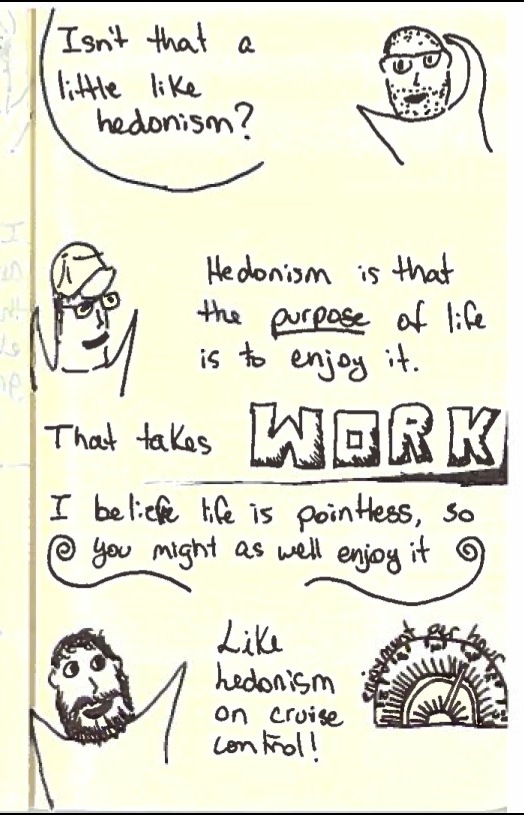 Isn't that a
little like
hedonism?
Hedonism is that
the purpose of life
is to enjoy it.
That takes WORK
I beliefe life is pointless, so
you might as well enjoy it
Like
hedonism
on cruise
control!
enjoyment per hour